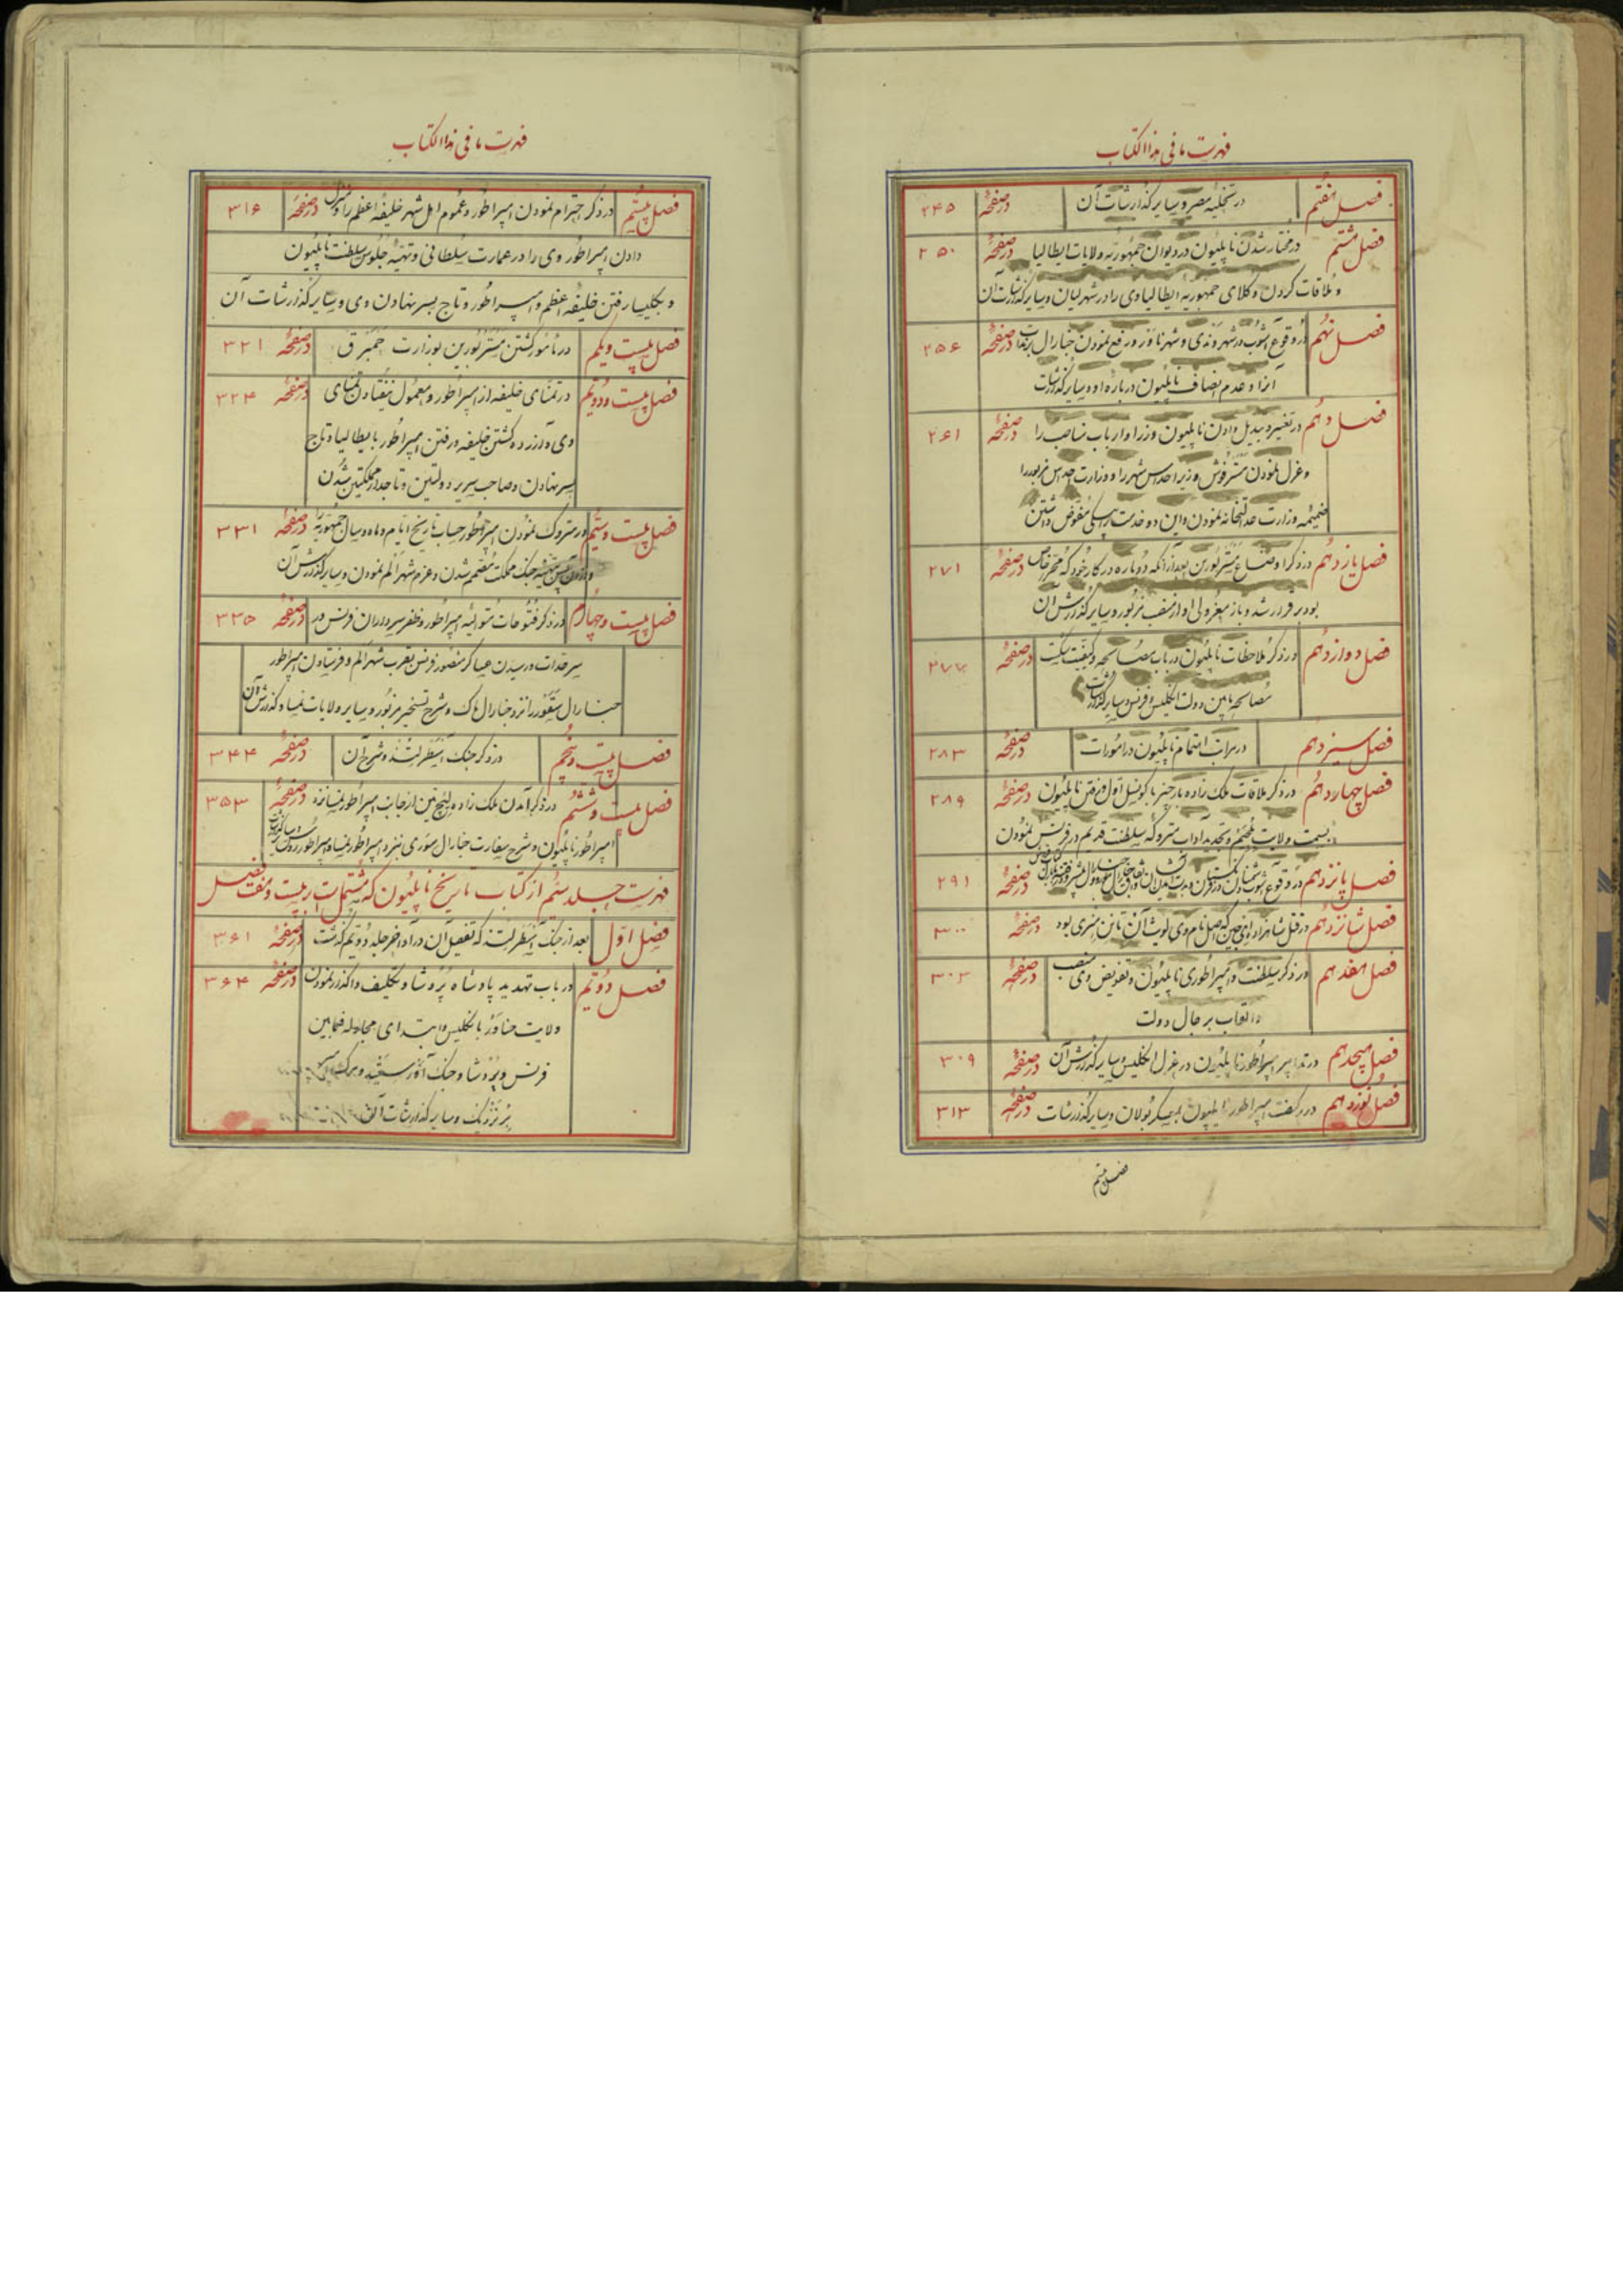 فهرست ما فی هذا الکتاب
فصل هفتم در تخلیه مصر و سایر گذارشات آن در صفحهٔ ۲۴۵
فصل هشتم در مختار شدن ناپلیون در دیوان جمهوریه ولایات ایطالیا در صفحهٔ ۲۵۰
و ملاقات کردن وکلای جمهوریه ایطالیا وی را در شهر لیان و سایر گذارشات آن
فصل نهم در وقوع آشوب در شهر وندی و شهر ناور و رفع نمودن جنارال برندا در صفحهٔ ۲۵۶
آنرا و عدم انصاف ناپلیون درباره او و سایر گذارشات
فصل دهم در تغییر و تبدیل دادن ناپلیون وزرا و ارباب مناصب را در صفحهٔ ۲۶۱
و عزل نمودن مستر فوش وزیر احداس شهر را و وزارت احداس مزبور را
ضمیمه وزارت عدالتخانه نمودن و این دو خدمت را بیکی مفوض داشتن
فصل یازدهم در ذکر اوضاع مستر بورین بعد از آنکه دوباره در کار خود که محرر خاص در صفحهٔ ۲۷۱
بود برقرار شد و باز معزولی او از منصب مزبور و سایر گذارش آن
فصل دوازدهم در ذکر ملاحظات ناپلیون در باب مصالحه و کیفیت شکست در صفحهٔ ۲۷۷
مصالحه مابین دولت انگلیس و فرنس و سایر گذارشات
فصل سیزدهم در مراتب اهتمام ناپلیون در امورات در صفحهٔ ۲۸۳
فصل چهاردهم در ذکر ملاقات ملک زاده بارجنز با کونسل اول و رفتن ناپلیون در صفحهٔ ۲۸۹
بسمت ولایت بلجیم و تجدید آداب متروکه سلطنت قدیم در فرنس نمودن
فصل پانزدهم در وقوع آشوب در صفحهٔ ۲۹۱
فصل شانزدهم در قتل شاهزاده انجین که اصل نام وی لویت آن تاین هنری بود در صفحهٔ ۳۰۰
فصل هفدهم در ذکر سلطنت و امپراطوری ناپلیون و تفویض وی منصب در صفحهٔ ۳۰۳
و القاب برجال دولت
فصل هیجدهم در تدابیر امپراطور ناپلیون در عزل انگلیس و سایر گذارش آن در صفحهٔ ۳۰۹
فصل نوزدهم در رفتن امپراطور ناپلیون بمعسکر بولان و سایر گذارشات در صفحهٔ ۳۱۳
فصل بیستم
فهرست ما فی هذا الکتاب
فصل بیستم در ذکر احترام نمودن امپراطور و عموم اهل شهر خلیفه اعظم را و منزل در صفحهٔ ۳۱۶
دادن امپراطور وی را در عمارت سلطانی و تهیه جلوس سلطنت ناپلیون
و بکلیسا رفتن خلیفه اعظم و امپراطور و تاج بسر نهادن وی و سایر گذارشات آن
فصل بیست و یکم در مامور گشتن مستر بورین بوزارت حمبرق در صفحهٔ ۳۲۱
فصل بیست و دویم در تمنای خلیفه از امپراطور و معمول نیفتادن تمنای در صفحهٔ ۳۲۴
وی و آزرده گشتن خلیفه و رفتن امپراطور بایطالیا و تاج
بسر نهادن و صاحب سریر دولتین و تاجدار مملکتین شدن
فصل بیست و سیم در متروک نمودن امپراطور حساب تاریخ ایام و ماه و سال جمهوریه را در صفحهٔ ۳۳۱
جنک مملکت مصمم شدن و عزم شهر الم نمودن و سایر گذارش آن
فصل بیست و چهارم در ذکر فتوحات متوالیه امپراطور و ظفر سرداران فرنس در در صفحهٔ ۳۳۵
سرحدات و رسیدن عساکر منصور فرنس بقرب شهر الم و فرستادن امپراطور
جنارال سقور را نزد جنارال ماک و شرح تسخیر مزبور و سایر ولایات نمسا و گذارش آن
فصل بیست و پنجم در ذکر جنک استطرلتنذ و شرح آن در صفحهٔ ۳۴۴
فصل بیست و ششم در ذکر آمدن ملک زاده لیخ تین از جانب امپراطور نمسا نزد در صفحهٔ ۳۵۳
امپراطور ناپلیون و شرح سفارت جنارال سوری بنزد امپراطور نمسا و امپراطور روس و سایر گذارشات
فهرست جلد سیم از کتاب تاریخ ناپلیون که مشتمل است بر بیست و هفت فصل
فصل اول بعد از جنک استطرلتنذ که تفصیل آن در آواخر جلد دویم گذشت در صفحهٔ ۳۶۱
فصل دویم در باب تهدید پادشاه پروشا و تکلیف واگذار نمودن در صفحهٔ ۳۶۴
ولایت حناور بانگلیس و ابتدای مجادله فیمابین
فرنس و پروشا و جنک
و سایر گذارشات آن